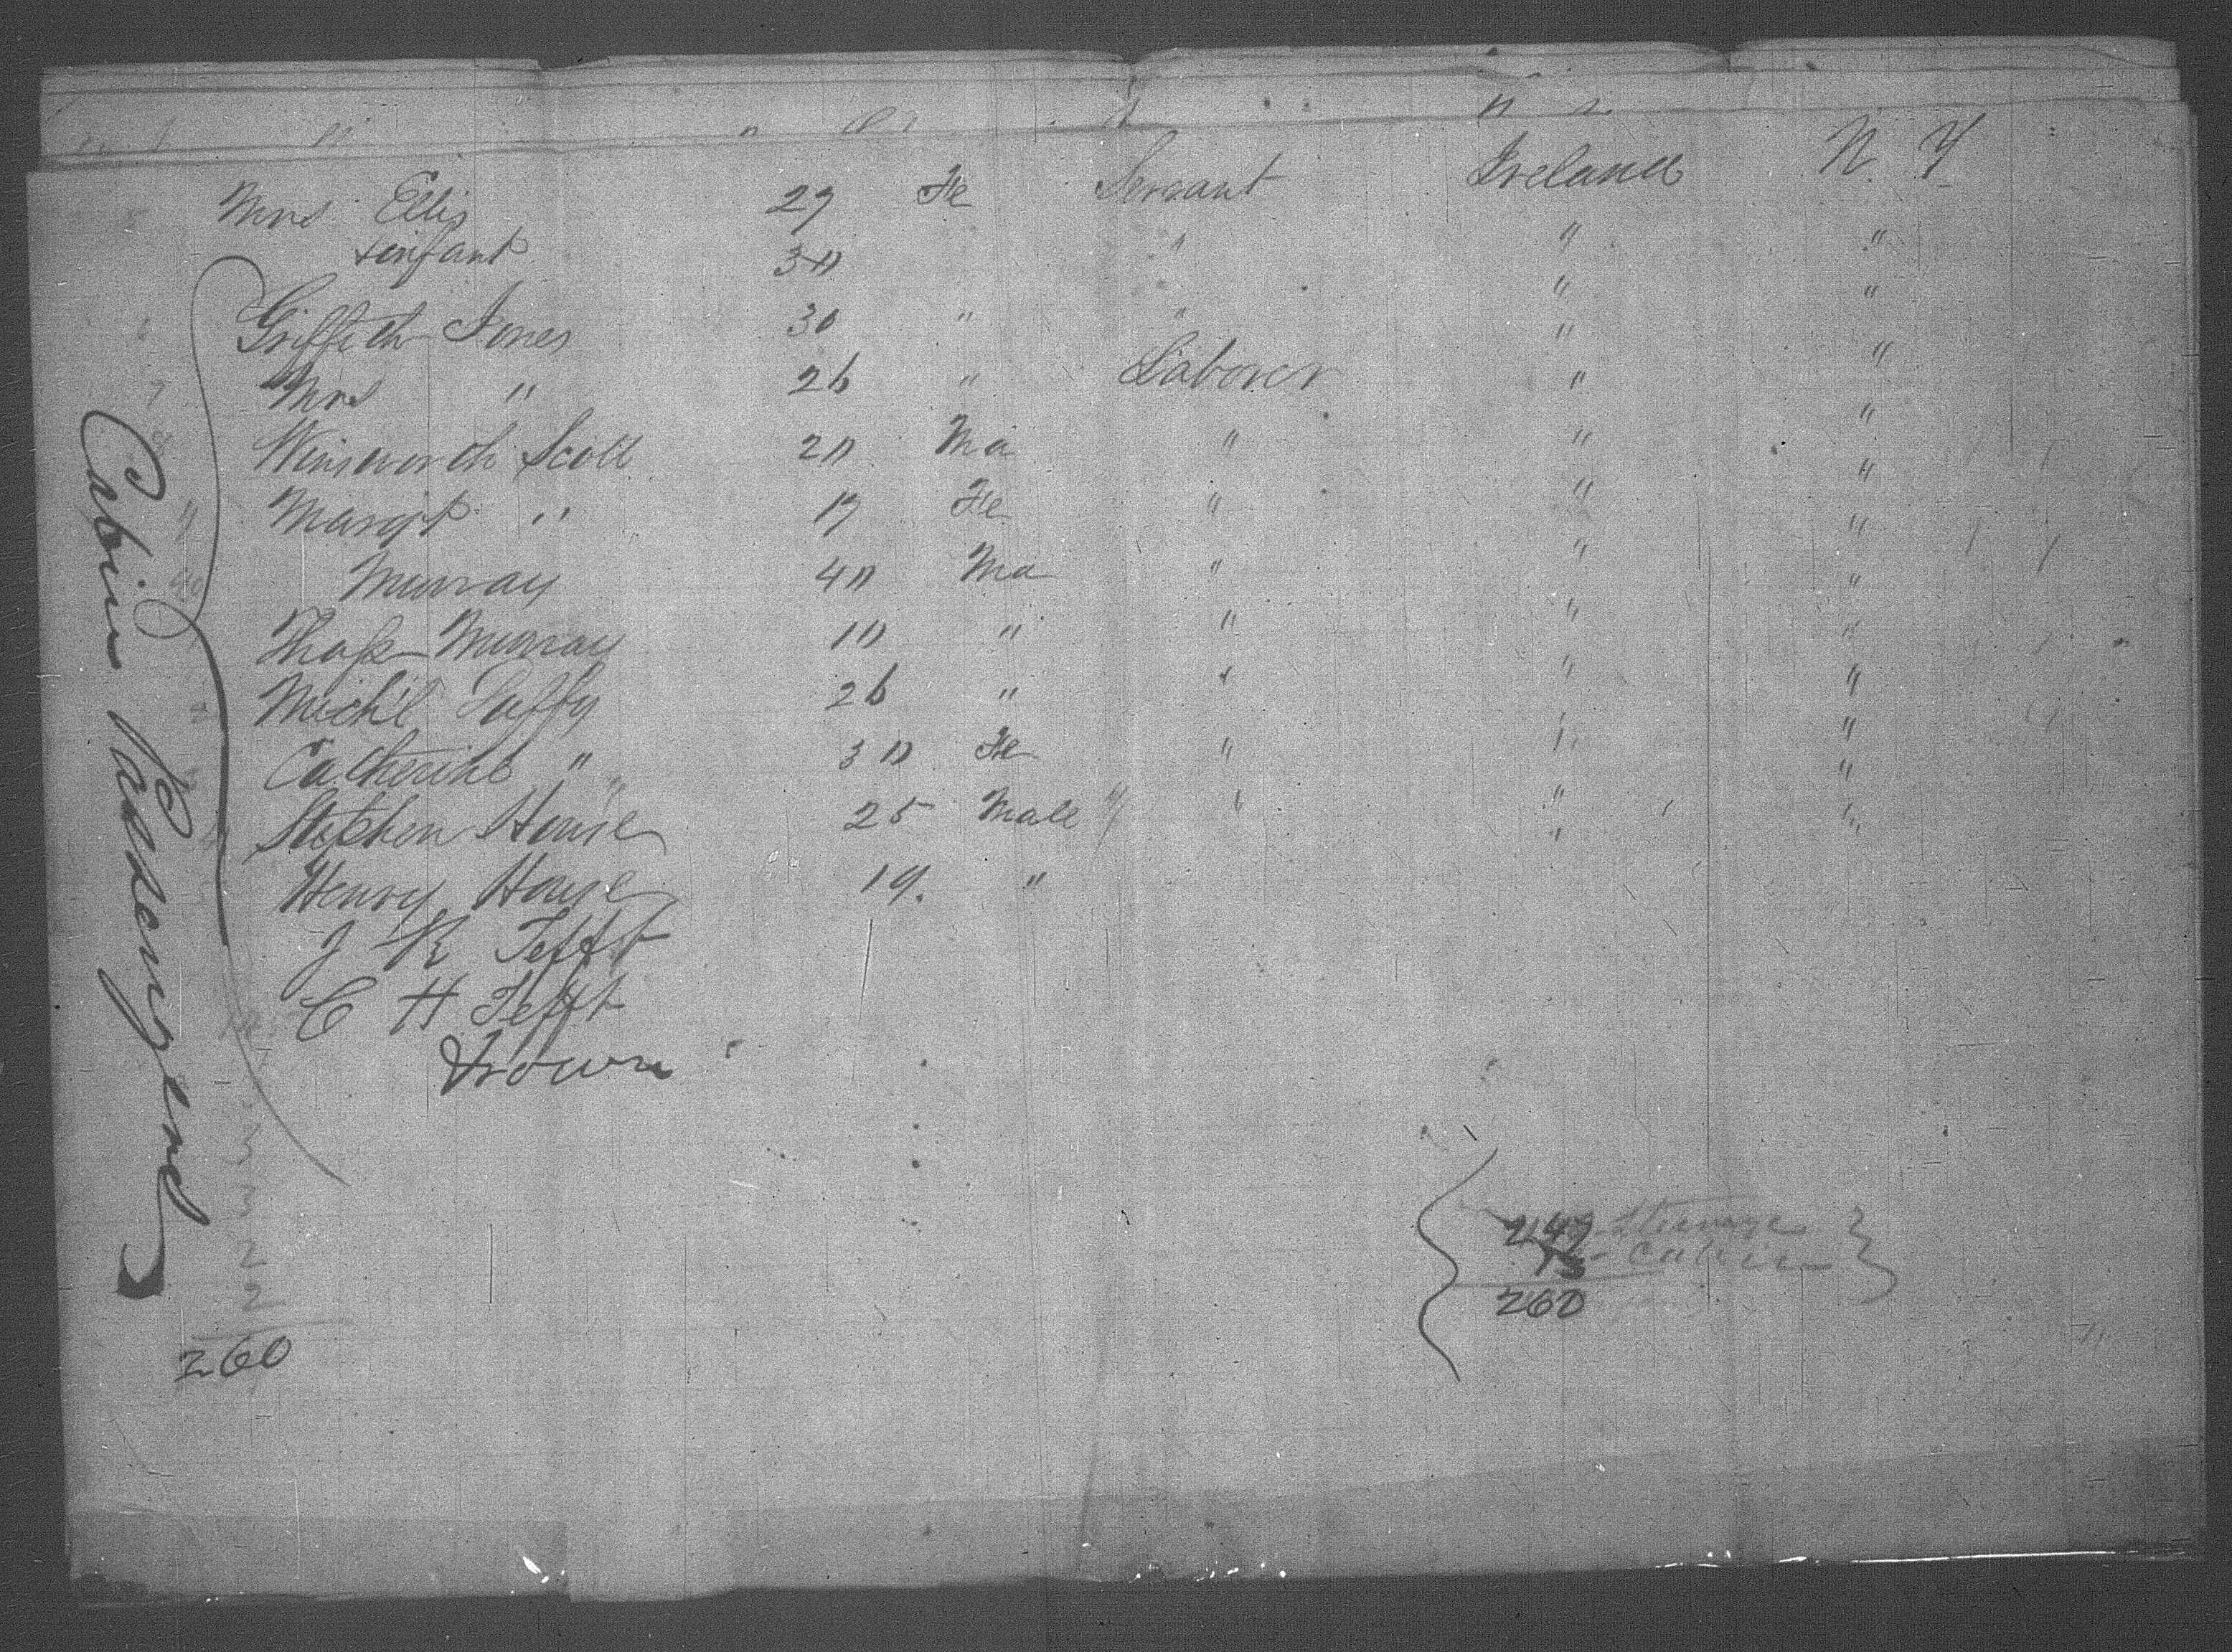 Mrs Ellis 29 Fe Servant Ireland N. Y
+ infant 3 " " " "
Griffith Jones 30 " " " "
Mrs " 26 " Laborer " "
Winsworth Scott 20 Ma " " "
Margt " 19 Fe " " "
Murray 40 Ma " " "
Thos Murray 10 " " " "
Mich'l Duffy 26 " " " "
Catherine " 30 Fe " " "
Stephen House 25 Male " " " "
Henry House 19. "
J R Tefft
C H Tefft
Brown
Cabin Passengers
3
3
2
2
260
Steerage
13 Cabin
260